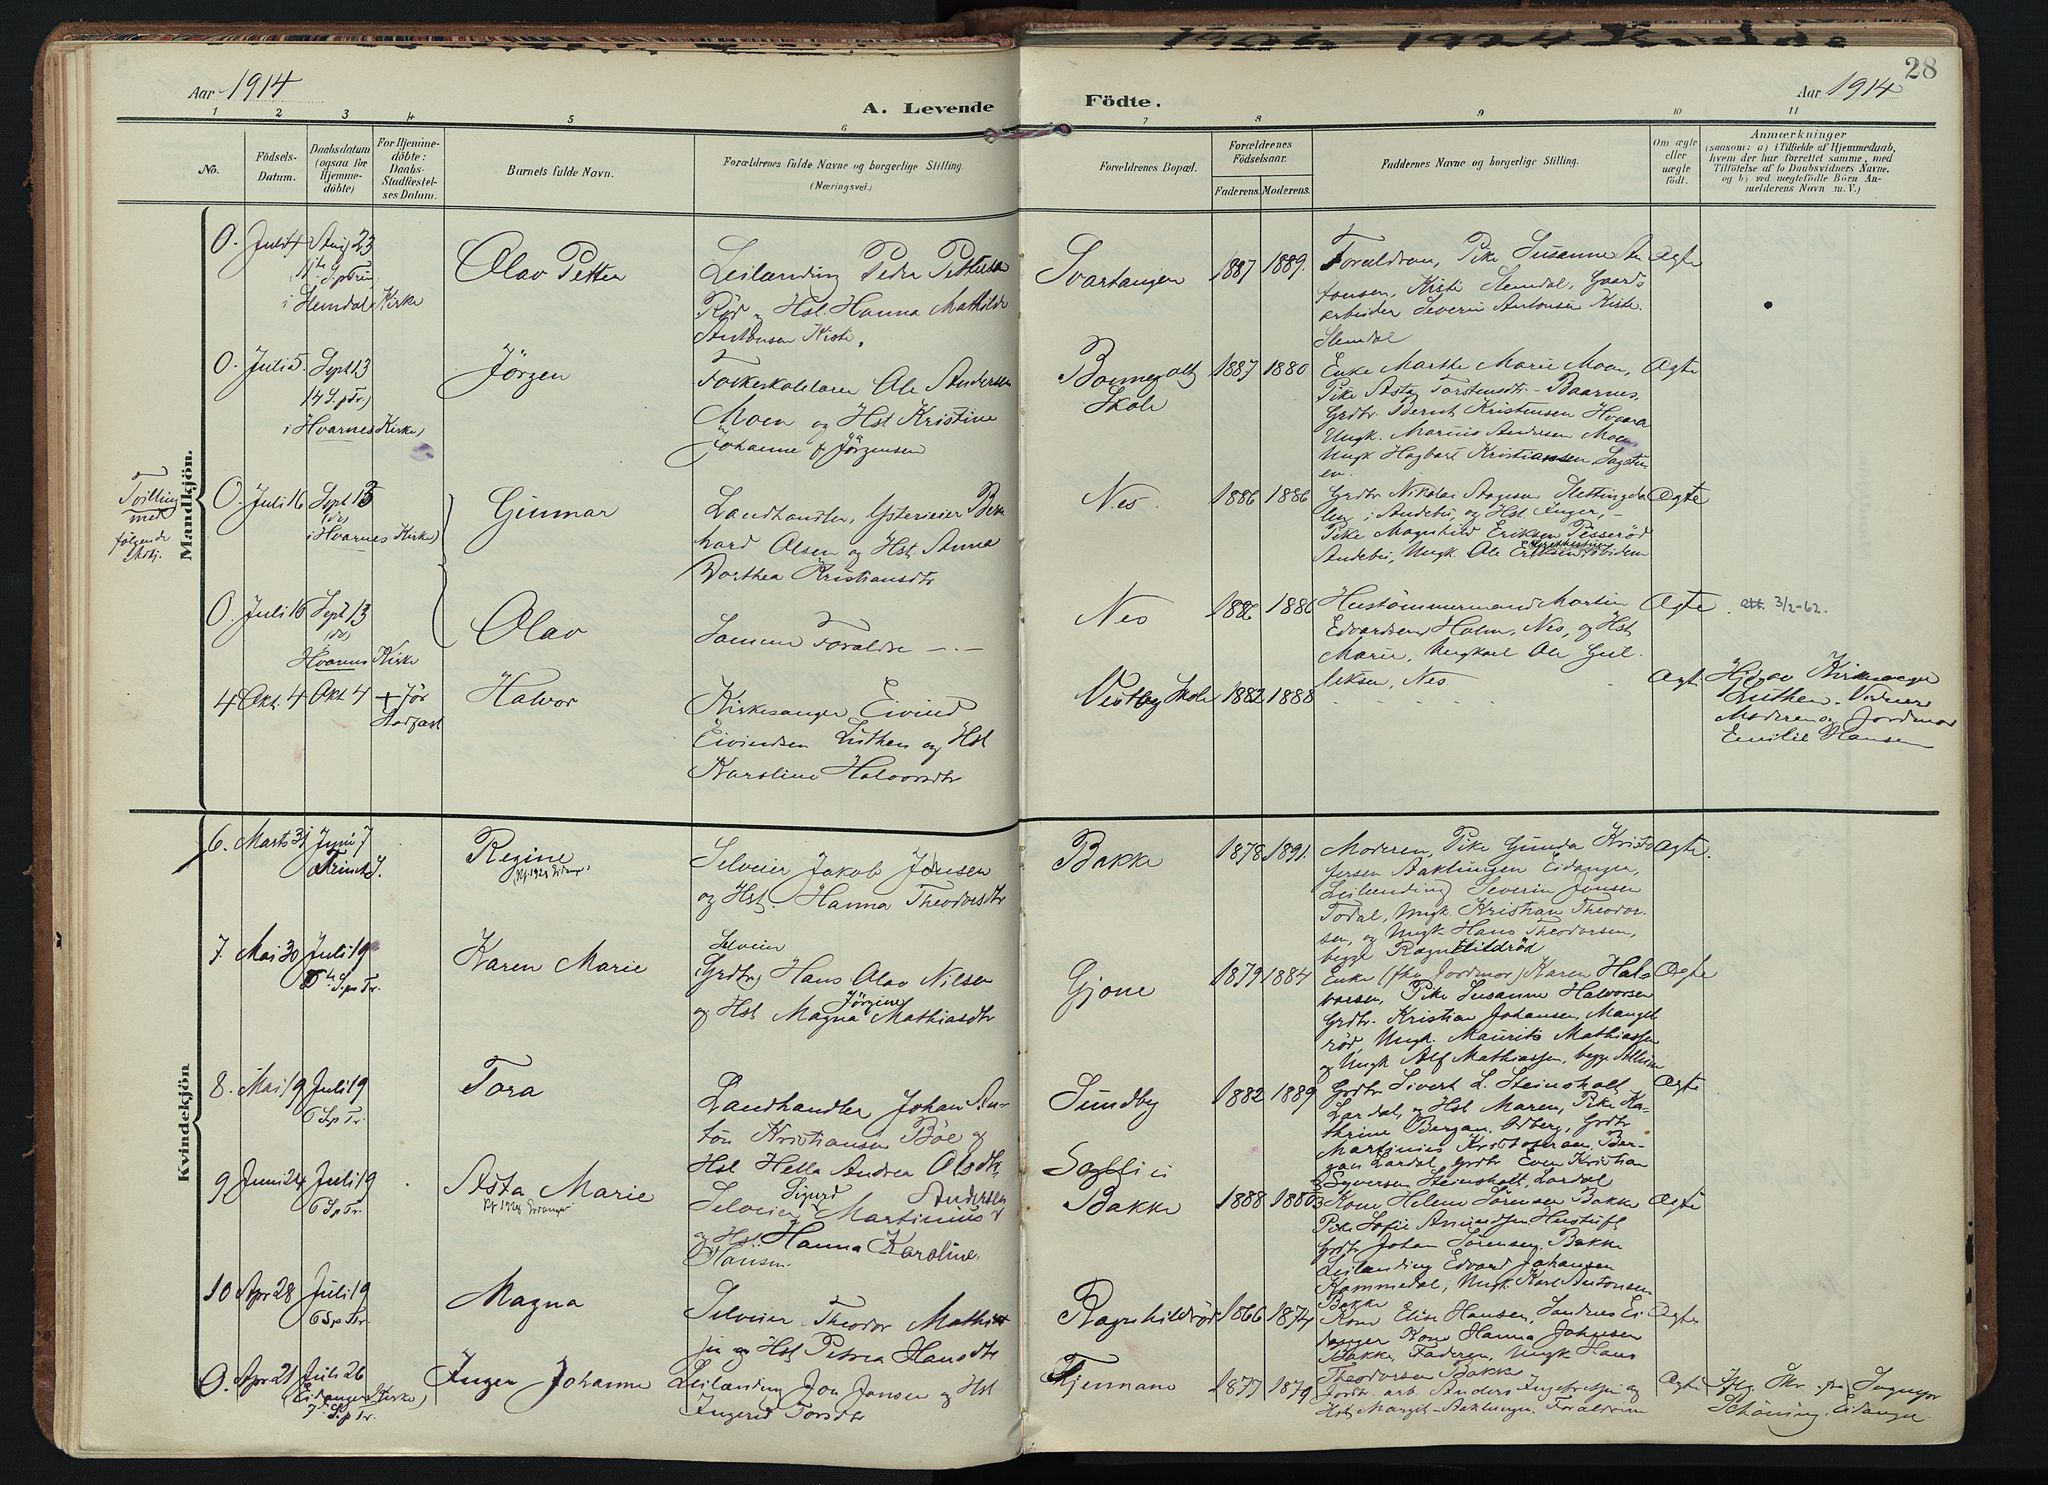 1906 1924 Kvelde
28
Aar 1914
A. Levende Födte.
Aar 1914
1 2 3 4 5 6 7 8 9 10 11
No.
Födsels-Datum.
Daabsdatum (ogsaa for Hjemme-döbte)
For Hjemme-döbte: Daabs-Stadfæstelses Datum.
Barnets fulde Navn.
Forældrenes fulde Navne og borgerlige Stilling.
(Næringsvei.)
Forældrenes Bopæl.
Forældrenes Födselsaar.
Faderens. Moderens.
Faddernes Navne og borgerlige Stilling.
Om ægte eller uægte födt.
Anmærkninger
(saasom: a) i Tilfælde af Hjemmedaab, hvem der har forrettet samme, med Tilföielse af to Daabsvidners Navne, og b) ved uægtefödte Börn Anmelderens Navn m. V.)
Mandkjön.
0. Juli 4 Aug 23
11te S. p Trin
i Hemdal Kirke
Olav Petter
Leilænding Peder Pettersen
Röd og Hst. Hanna Mathilde
Antonsen Kiste.
Svartangen
1887 1889.
Foraldren, Pike Susanne An
tonsen, Kiste Slemdal, Gaards
arbeider Severin Antonsen Kiste
Slemdal
Ægte
0. Juli 5. Sept 13
14 S. p Tr.)
i Hvarnes Kirke)
Jörgen
Folkeskolelærer Ole Andersen
Moen og Hst Kristine
Johanne f. Jörgensen
Bommegalt
Skole
1887 1880
Enke Marthe Marie Moen,
Pike Asta Torstensdtr. Baarnes,
Grdbr. Bernt Kristensen Hvaara
Ungk. Marius Andersen Moen
Ungk Hagbart Kristiansen Sagstu
en.
Ægte
Tvilling
med
fölgende
0. Juli 16 Sept 13
(do)
i Hvarnes Kirke)
Gunnar
Landhandler, Ysterieier Bern
hard Olsen og Hst. Anna
Dorthea Kristiansdtr
Nes.
1886 1886
Grdbr Nikolai Aagesen Slettingda
len i Andebu, og Hst Inger,
Pike Magnhild Eriksen Pesserød
Andebu, Ungk. Ole Eriksen, ibidem
Ægte
0. Juli 16 Sept 13
(do)
Hvarnes Kirke
Olav
Samme Foraldre - . -
Nes
1886 1886
Hustömmermand Martin
Edvardsen Holm, Nes, og Hst
Marie, Ungkarl Ole Gul
liksen, Nes
Ægte . att. 3/2-62.
4 Okt. 4 Okt 4
+ för
Stadfæst
Halvor
Kirkesanger Eivind
Eivindsen Luthen og Hst
Karoline Halvorsdtr
Vestby Skole
1882 1888
Ægt.
Hj. av Kirkesanger
Luthen. Vidner:
Moderen og Jordmor
Emilie Hansen
Kvindekjön
6. Marts 31 Juni 7
Trinit. S.
Regine
(Kf. 1928 Eidanger)
Selveier Jakob Jonsen
og Hst. Hanna Theodorsdtr
Bakke
1878 1891.
Moderen, Pike Gunda Kristo
fersen Aaklungen Eidanger,
Leilænding Severin Jonsen
Todal, Ungk. Kristian Theodor
sen, og Ungk Hans Theodorsen,
begge Ragnhildröd
Ægte.
7. Mai 30 Juli 19
6te S. p Tr.
Karen Marie
Selveier
(Grdbr) Hans Olav Nilsen
og Hst Magna Jörgine Mathiasdtr
Gjone
1879 1884
Enke (fhv Jordmor) Karen Hal
vorsen, Pike Susanne Halvorsen
Grdbr. Kristian Johansen, Mangel
röd, Ungk. Maurits Mathiassen
og Ungk Alf Mathiassen, begge
Ægte
8. Mai 19 Juli 19
6 S. p Tr.
Tora
Landhandler Johan An-
ton Kristiansen Böe og
Hst Hella Andrea Olsdtr
Sundby
1882 1889
Grdbr Sivert L. Steinsholt
Lardal, og Hst Maren, Pike Ka-
thrine Bergan, Odberg, Grdbr
Martinius Kristofersen, Ber-
gan Lardal, Grdbr Even Kristian
Syversen Steinsholt, Lardal
Ægte
9 Juni 24 Juli 19
6 S. p Tr.
Asta Marie
Kf 1928 Eidanger
Selveier Sigurd Martinius Andersen
og Hst. Hanna Karoline
Hansen
Bakke
1888 1880
Kone Helene Sörensen Bakke
Pike Sofie Amundsen Hustuft
Grdbr Johan Sörensen, Bakke
Leilænding Edvard Johansen
Hammedal, Ungk Karl Antonsen
Bakke
Ægte
10 Apr 28 Juli 19
6 S. p Tr.
Magna
Selveier Theodor Mathias
sen og Hst Petrea Hansdtr
Ragnhildröd
1866 1874
Kone Elise Hansen, Sandnes Ei
danger Kone Hanna Johnsen
Bakke, Faderen, Ungk Hans
Theodorsen Bakke
Ægte
0. Apr 21 Juli 26
(Eidanger Kirke)
7. S. p Tr.
Inger Johanne
Leilænding Jon Jonsen og Hst
Ingerid Torsdtr
Fjermane
1877 1879
Jordbr. arb. Anders Ingebretsen og
Hst Margit Aaklungen, Foraldrene
Ægte
Iflg. Skr. fra Sogneprest
Schöning, Eidanger